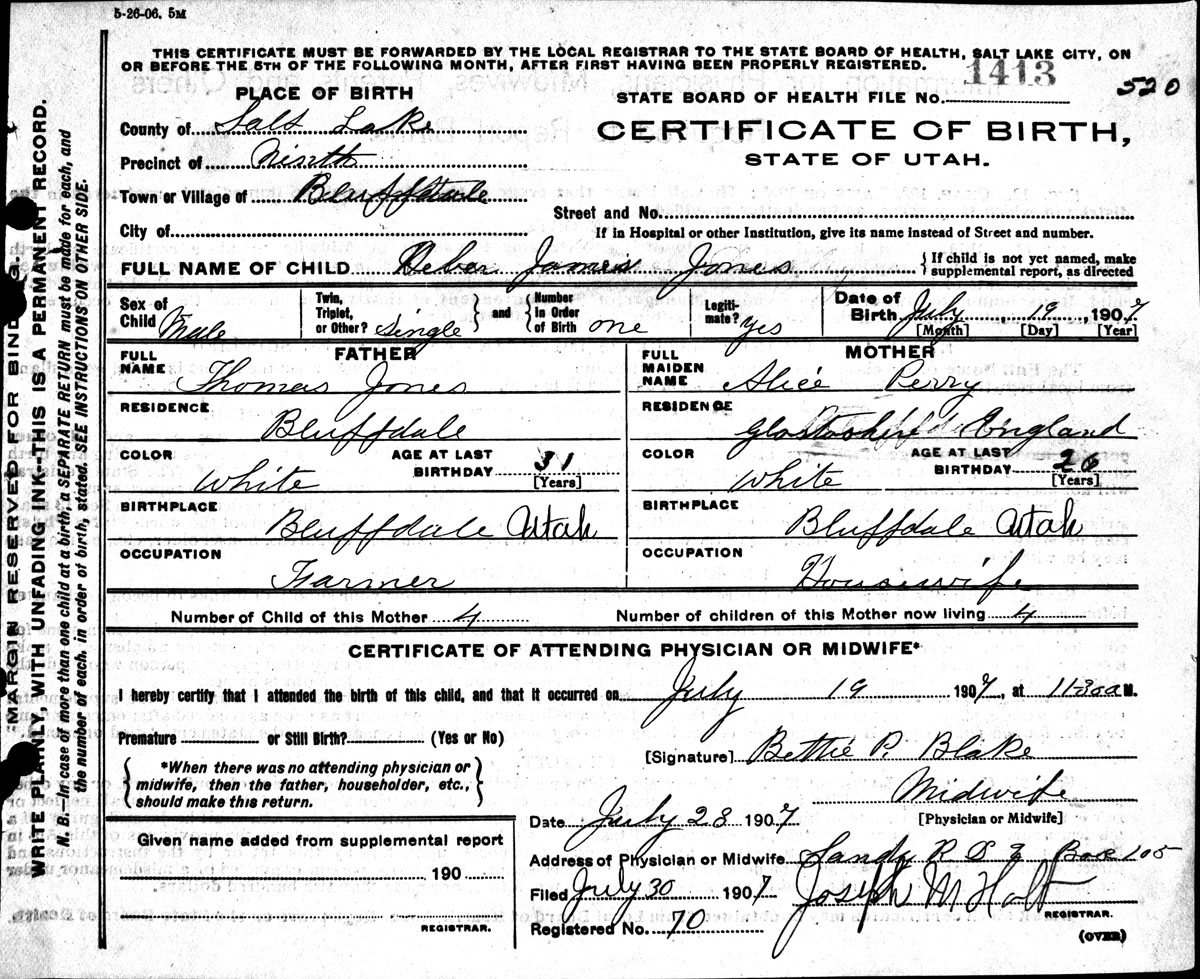 5-26-06. 5M
THIS CERTIFICATE MUST BE FORWARDED BY THE LOCAL REGISTRAR TO THE STATE BOARD OF HEALTH, SALT LAKE CITY, ON
OR BEFORE THE 5TH OF THE FOLLOWING MONTH, AFTER FIRST HAVING BEEN PROPERLY REGISTERED.
1413
520
PLACE OF BIRTH
STATE BOARD OF HEALTH FILE No.
County of Salt Lake
CERTIFICATE OF BIRTH,
Precinct of Ninth
STATE OF UTAH.
Town or Village of Bluffdale
Street and No.
City of
If in Hospital or other Institution, give its name instead of Street and number.
FULL NAME OF CHILD Heber James Jones
{ If child is not yet named, make
supplemental report, as directed
Sex of Child Male
Twin, Triplet, or Other? Single } and { Number in Order of Birth one
Legitimate? yes
Date of Birth July, 19, 1907
[Month] [Day] [Year]
FATHER
FULL NAME Thomas Jones
MOTHER
FULL MAIDEN NAME Alice Perry
RESIDENCE Bluffdale
RESIDENCE England
COLOR White
AGE AT LAST BIRTHDAY 31 [Years]
COLOR White
AGE AT LAST BIRTHDAY 26 [Years]
BIRTHPLACE Bluffdale Utah
BIRTHPLACE Bluffdale Utah
OCCUPATION Farmer
OCCUPATION Housewife
Number of Child of this Mother 4
Number of children of this Mother now living 4
CERTIFICATE OF ATTENDING PHYSICIAN OR MIDWIFE*
I hereby certify that I attended the birth of this child, and that it occurred on July 19 1907, at 11-30 a M.
Premature or Still Birth? (Yes or No)
[Signature] Bettie P. Blake
{ *When there was no attending physician or
midwife, then the father, householder, etc.,
should make this return. }
Midwife
[Physician or Midwife]
Date July 28 1907
Given name added from supplemental report
190
REGISTRAR.
Address of Physician or Midwife Sandy R Box 105
Filed July 30 1907 Joseph M Holt
REGISTRAR.
Registered No. 70
(OVER)
"MARGIN RESERVED FOR BINDING."
WRITE PLANLY WITH UNFADING INK--THIS IS A PERMANENT RECORD.
N. B.--In case of more than one child at a birth, a SEPARATE RETURN must be made for each, and
the number of each, in order of birth, stated. SEE INSTRUCTIONS ON OTHER SIDE.